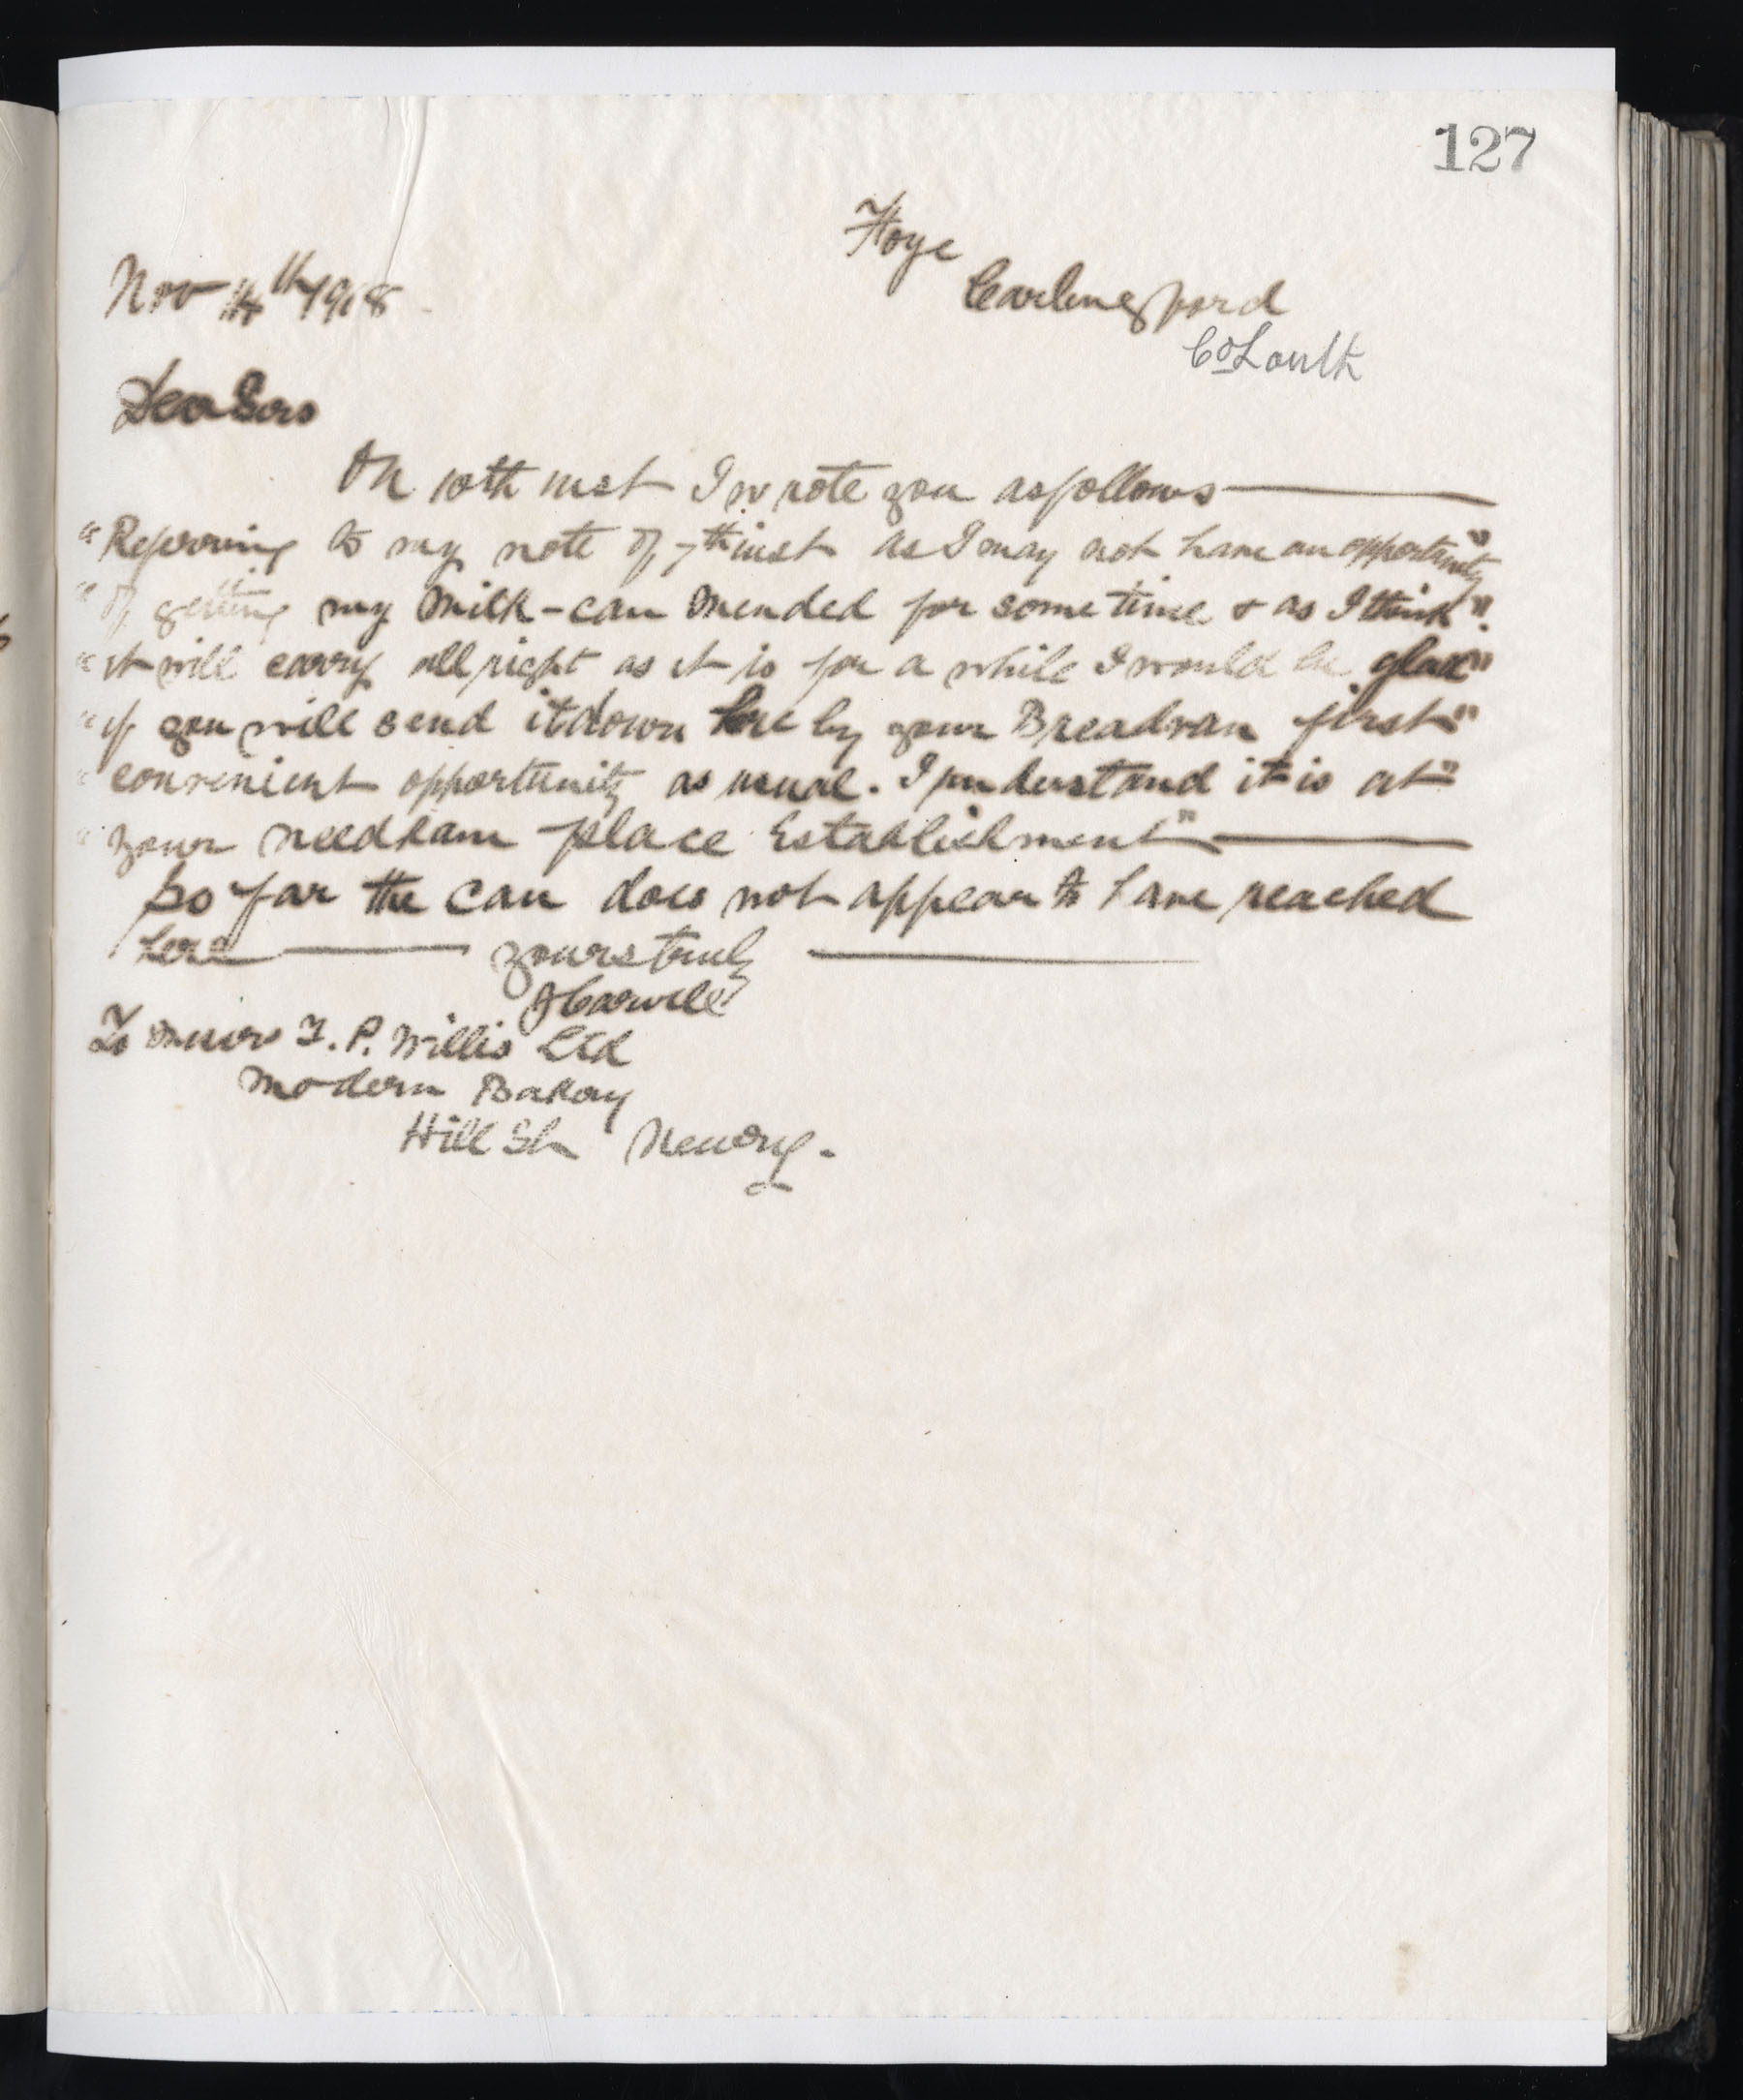 127
Nov 14th 1918
Carlingford
Co Louth
Dear Sirs
On 10th inst I wrote you as follows
"Referring to my note of 7th inst as I may not have an opportunity"
"of getting my Milk-can mended for some time & as I think"
"it will carry all right as it is for a while I would be glad"
"if you will send it down here by your Breadvan first"
"convenient opportunity as usual. I understand it is at"
"your Needham place Establishment"
So far the can does not appear to have reached
here
yours truly
To Messrs F. P. Willis Ltd
Modern Bakery
Hill St Newry.